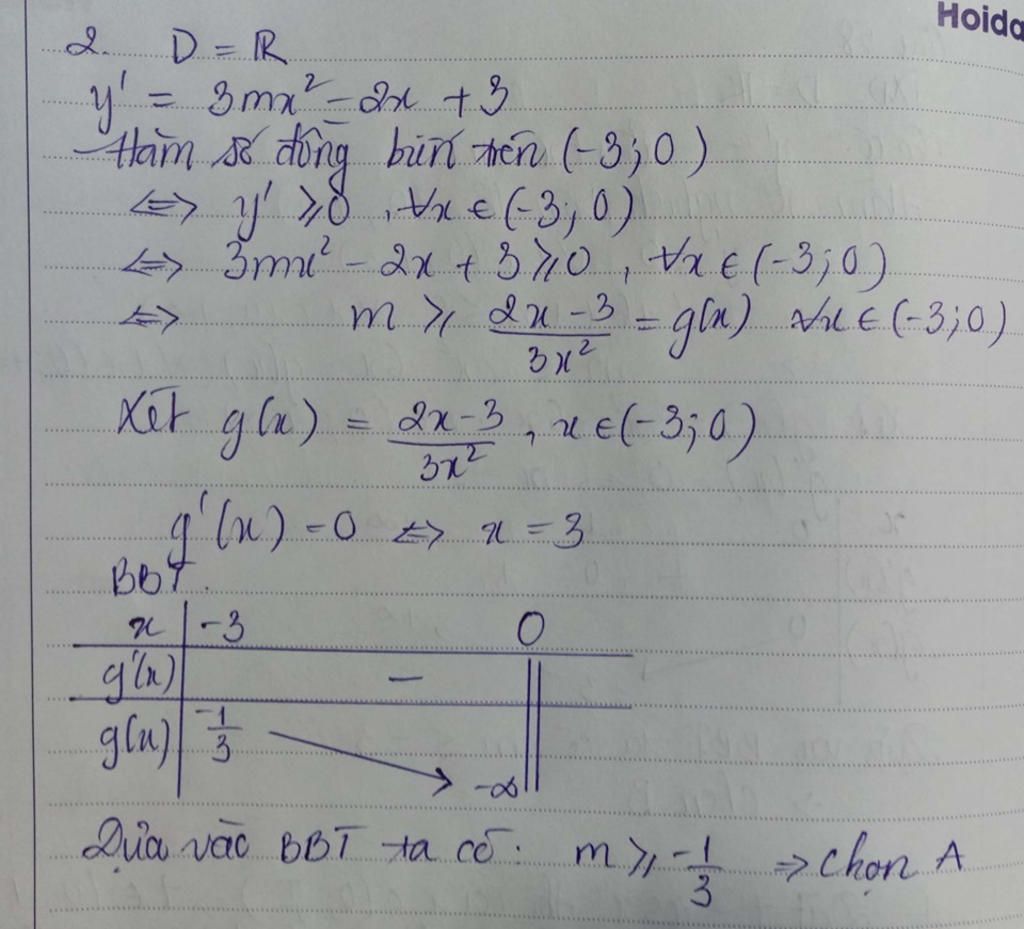 Hoida
2. D = ℝ
y' = 3mx² - 2x + 3
Hàm số đồng biến trên (-3;0)
⇔ y' ≥ 0, ∀x ∈ (-3;0)
⇔ 3mx² - 2x + 3 ≥ 0, ∀x ∈ (-3;0)
⇔ m ≥ (2x-3)/(3x²) = g(x) ∀x ∈ (-3;0)
Xét g(x) = (2x-3)/(3x²), x ∈ (-3;0)
g'(x) = 0 ⇔ x = 3
BBT.
x | -3 0
g'(x) | - ||
g(x) | -1/3 -∞ ||
Dựa vào BBT ta có: m ≥ -1/3 ⇒ Chọn A